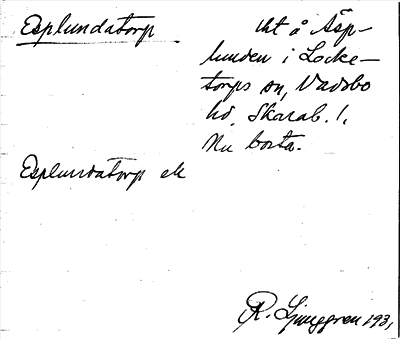 Esplundatorp
tht å Äsp-
lunden i Locke-
torps sn, Vadsbo
hd. Skarab. l.
Nu borta.
Esplundatorp ek
R. Ljunggren 1931,